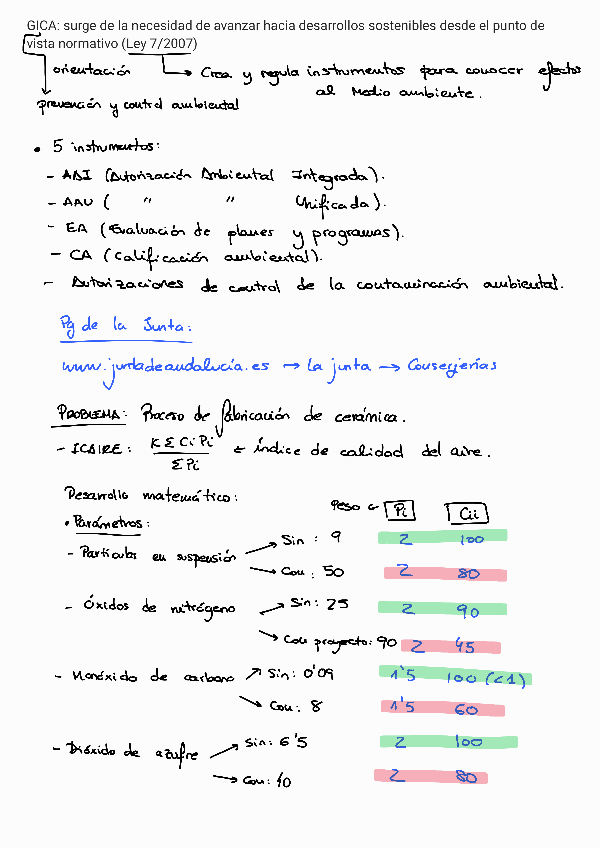 GICA: surge de la necesidad de avanzar hacia desarrollos sostenibles desde el punto de
vista normativo (Ley 7/2007)
orientación → Crea y regula instrumentos para conocer efectos
al Medio ambiente.
prevención y control ambiental
• 5 instrumentos:
- AAI (Autorización Ambiental Integrada).
- AAU ( " " Unificada).
- EA (Evaluación de planes y programas).
- CA (Calificación ambiental).
- Autorizaciones de control de la contaminación ambiental.
Pg de la Junta:
www.juntadeandalucía.es → La junta → Consejerías
PROBLEMA: Proceso de fabricación de cerámica.
- ICAIRE: K Σ Ci Pi / Σ Pi ← Índice de calidad del aire.
Desarrollo matemático:
Peso ← Pi Cii
• Parámetros:
- Partículas en suspensión → Sin: 9 2 100
→ Con: 50 2 80
- Óxidos de nitrógeno → Sin: 25 2 90
→ Con proyecto: 90 2 45
- Monóxido de carbono ↗ Sin: 0'09 1'5 100 (<1)
→ Con: 8 1'5 60
- Dióxido de azufre → Sin: 6'5 2 100
→ Con: 10 2 80